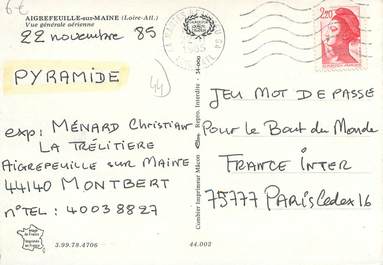 6€
AIGREFEUILLE-sur-MAINE (Loire-Atl.)
Vue générale aérienne
22 novembre 85
PYRAMIDE
44
exp: MÉNARD Christian
LA TRÉLITIERE
AIGREFEUILLE SUR MAINE
44140 MONTBERT
N°TEL: 40038827
3.99.78.4706
44.002
Combier Imprimeur Mâcon
Repro. Interdite
2,20
JEU MOT DE PASSE
Pour le Bout du Monde
FRANCE INTER
75777 PARIS Cedex 16